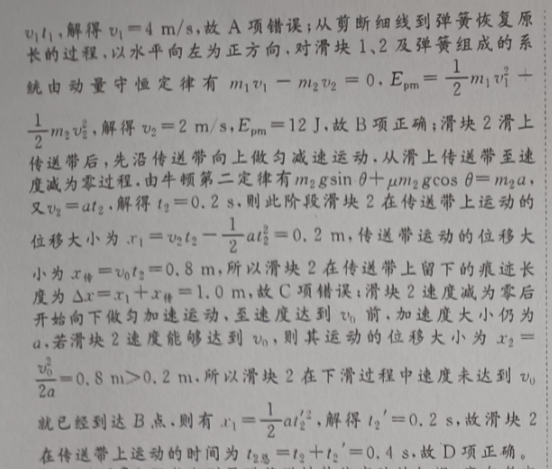 v₁t₁,解得 v₁=4 m/s,故 A 项错误;从剪断细线到弹簧恢复原
长的过程,以水平向左为正方向,对滑块 1、2 及弹簧组成的系
统由动量守恒定律有 m₁v₁−m₂v₂=0,Eₚₘ=\frac{1}{2}m₁v₁²+
\frac{1}{2}m₂v₂²,解得 v₂=2 m/s,Eₚₘ=12 J,故 B 项正确;滑块 2 滑上
传送带后,先沿传送带向上做匀减速运动,从滑上传送带至速
度减为零过程,由牛顿第二定律有m₂gsin θ+μm₂gcos θ=m₂a,
又v₂=at₂,解得 t₂=0.2 s,则此阶段滑块 2 在传送带上运动的
位移大小为 x₁=v₂t₂−\frac{1}{2}at₂²=0.2 m,传送带运动的位移大
小为 x传=v₀t₂=0.8 m,所以滑块 2 在传送带上留下的痕迹长
度为 Δx=x₁+x传=1.0 m,故 C 项错误;滑块 2 速度减为零后
开始向下做匀加速运动,至速度达到 v₀ 前,加速度大小仍为
a,若滑块 2 速度能够达到 v₀,则其运动的位移大小为 x₂=
\frac{v₀²}{2a}=0.8 m>0.2 m,所以滑块 2 在下滑过程中速度未达到 v₀
就已经到达 B 点,则有 x₁=\frac{1}{2}at₂′²,解得 t₂′=0.2 s,故滑块 2
在传送带上运动的时间为 t₂总=t₂+t₂′=0.4 s,故 D 项正确。